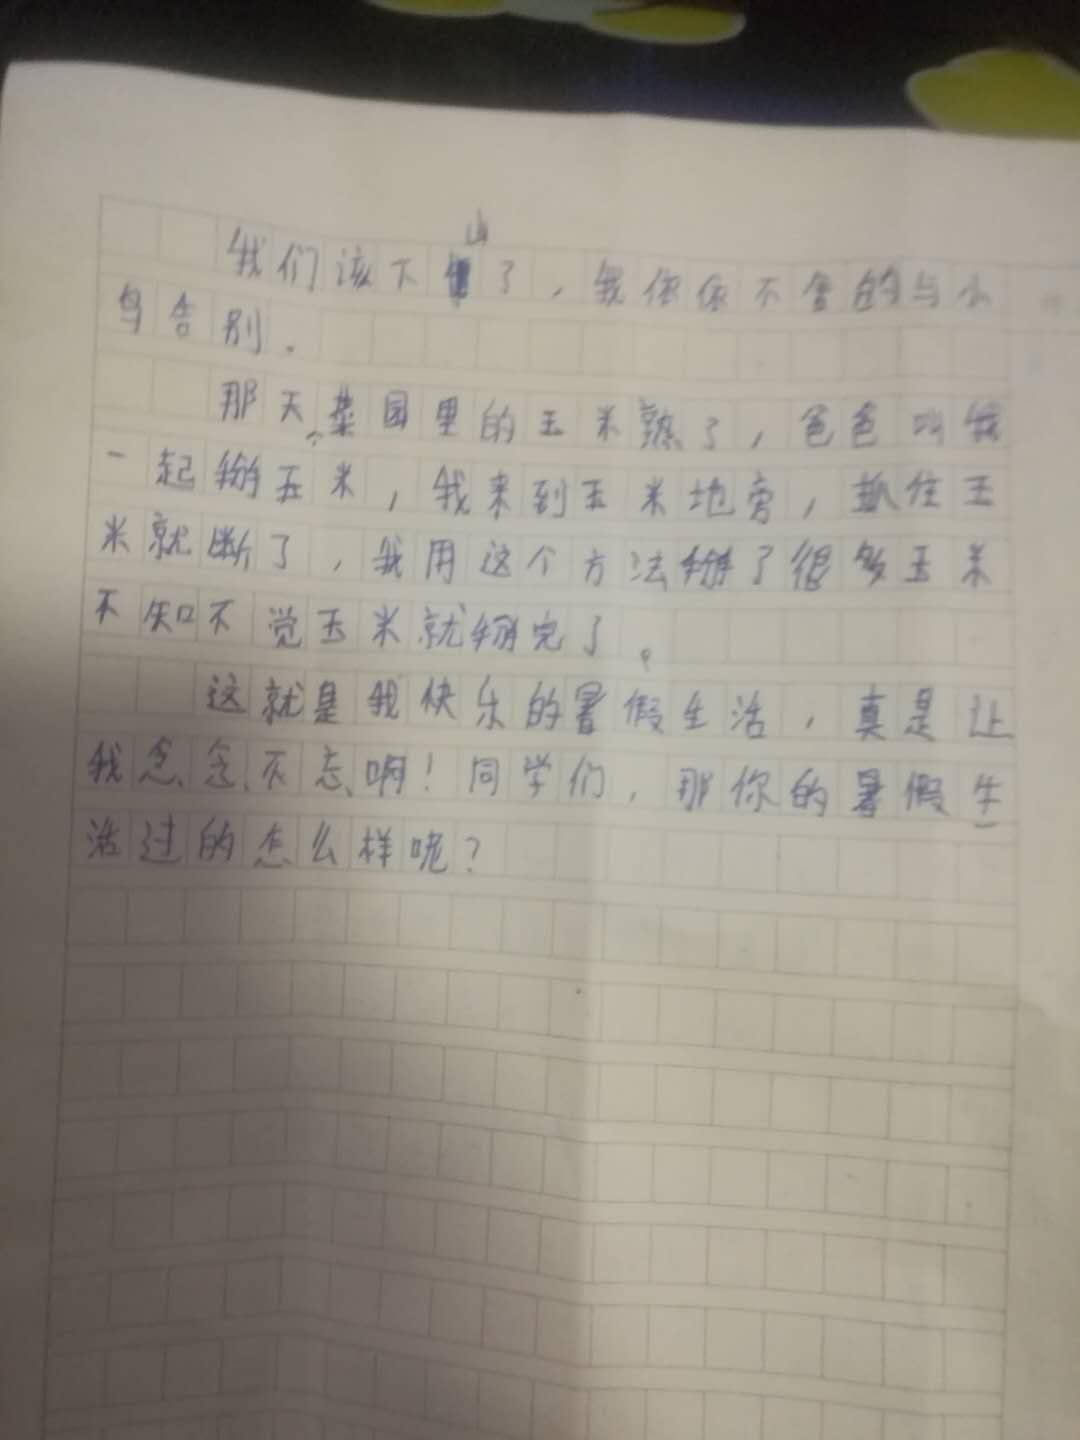 山
我们该下了，我依依不舍的与小
鸟告别。
那天，菜园里的玉米熟了，爸爸叫我
一起掰玉米，我来到玉米地旁，抓住玉
米就断了，我用这个方法掰了很多玉米
不知不觉玉米就掰完了。
这就是我快乐的暑假生活，真是让
我念念不忘啊！同学们，那你的暑假生
活过的怎么样呢？